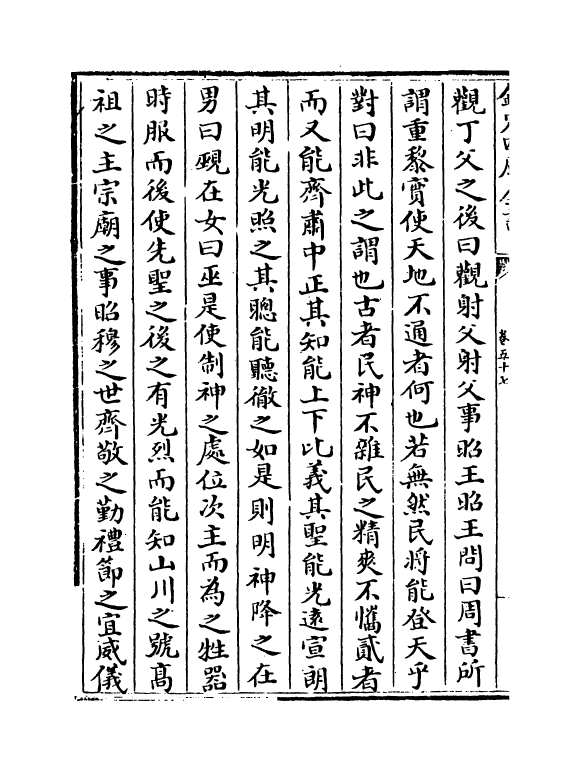 卷五十七
觀丁父之後曰觀射父射父事昭王昭王問曰周書所
謂重黎實使天地不通者何也若無然民將能登天乎
對曰非此之謂也古者民神不雜民之精爽不懾貳者
而又能齊肅中正其知能上下比義其聖能光遠宣朗
其明能光照之其聰能聽徹之如是則明神降之在
男曰覡在女曰巫是使制神之處位次主而為之牲器
時服而後使先聖之後之有光烈而能知山川之號髙
祖之主宗廟之事昭穆之世齊敬之勤禮節之宜威儀